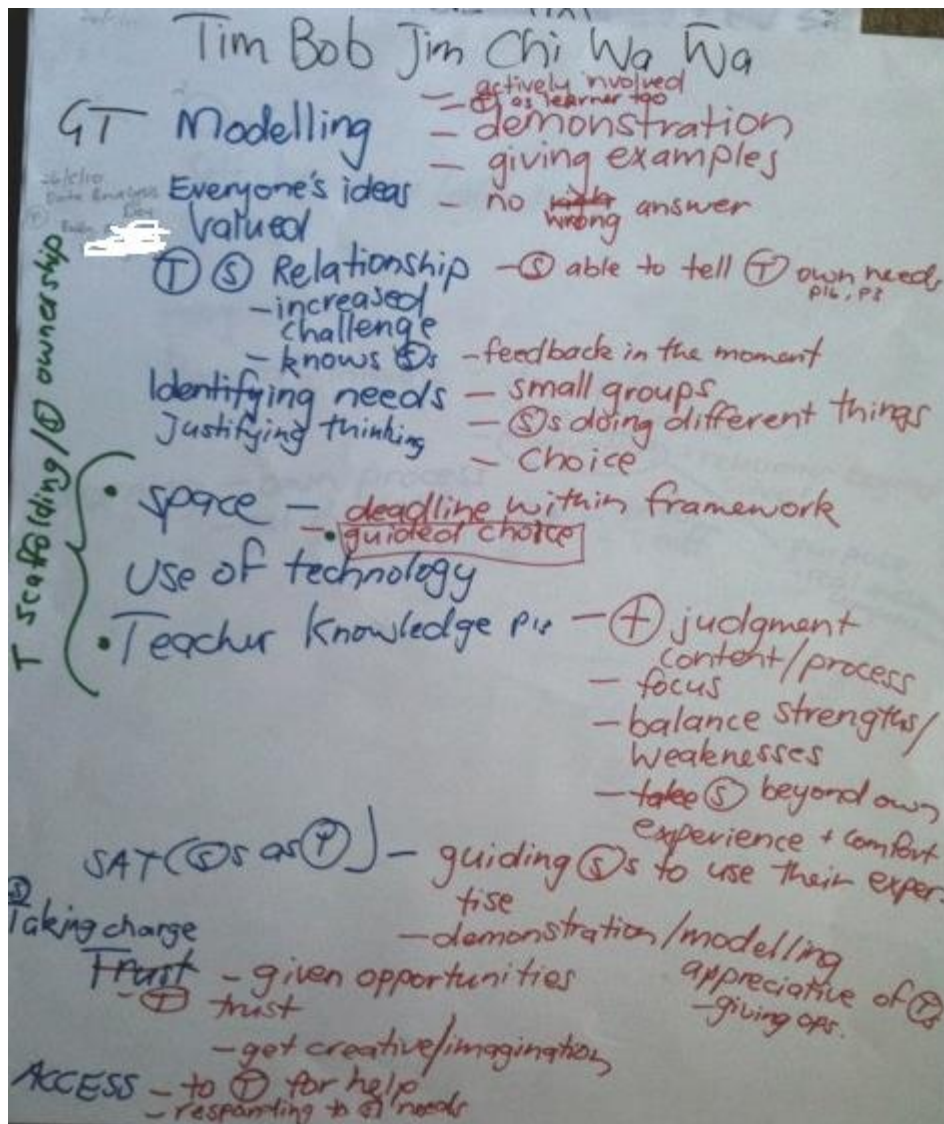 Tim Bob Jim Chi Wa Wa
– actively involved
– Ⓣ as learner too
GT Modelling – demonstration
– giving examples
Everyone's ideas – no wrong answer
Valued
Ⓣ Ⓢ Relationship – Ⓢ able to tell Ⓣ own needs
p16, p3
– increased
challenge
– knows Ⓢs – feedback in the moment
Identifying needs – small groups
Justifying thinking – Ⓢs doing different things
– choice
T scaffolding/Ⓢ ownership
• space – deadline within framework
– • guided choice
Use of technology
• Teacher Knowledge – + judgment
content/process
– focus
– balance strengths/
weaknesses
– take Ⓢ beyond own
experience + comfort
SAT (Ⓢs as Ⓣ) – guiding Ⓢs to use their exper-
tise
Ⓢ
Taking charge – demonstration/modelling
Trust – given opportunities appreciative of Ⓣs
– Ⓣ trust – giving ops.
– get creative/imagination
ACCESS – to Ⓣ for help
– responding to needs